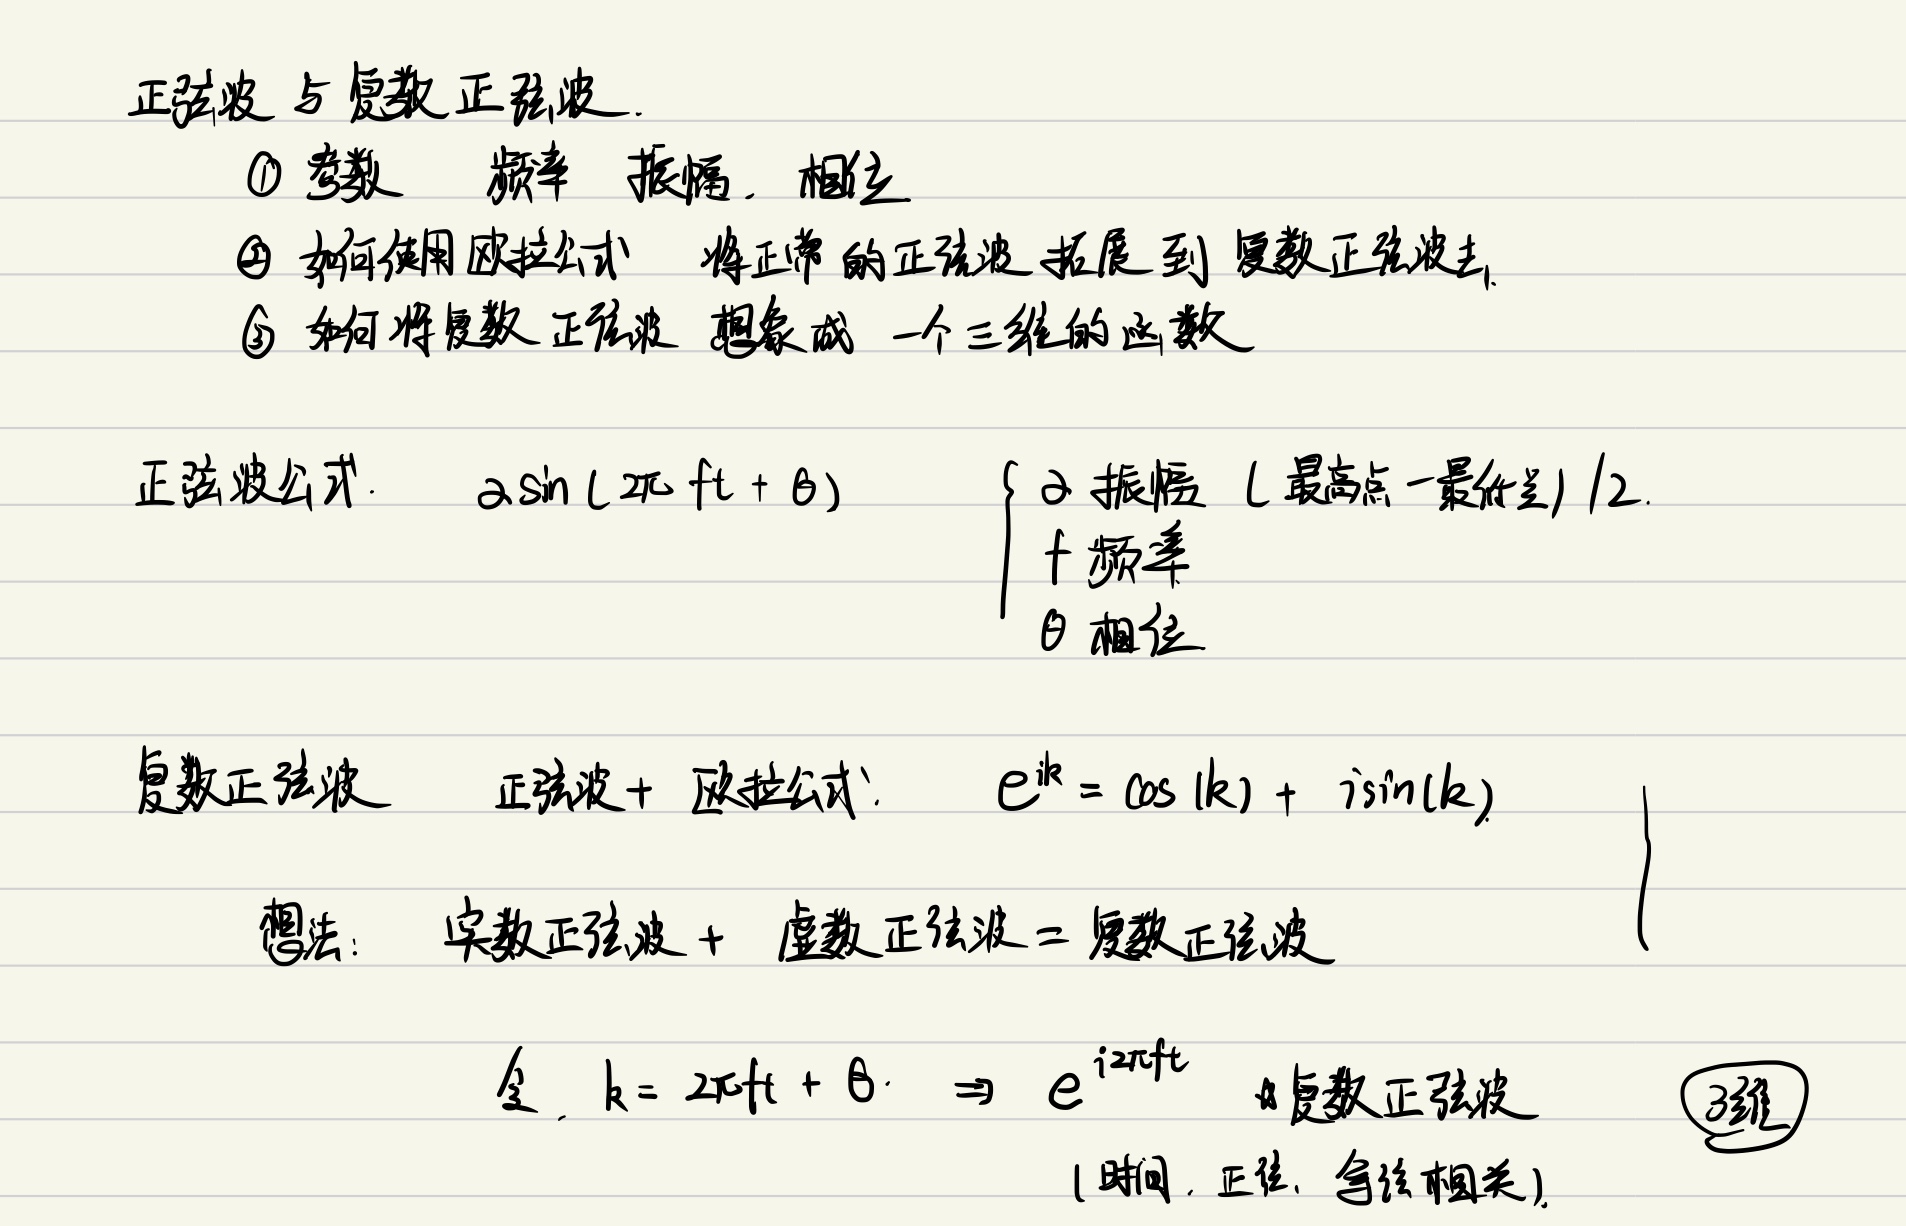 正弦波与复数正弦波.
① 参数 频率 振幅. 相位
② 如何使用欧拉公式 将正常的正弦波拓展到复数正弦波去.
③ 如何将复数正弦波 想象成 一个三维的函数
正弦波公式. a sin(2π ft + θ) { a 振幅 (最高点-最低点)/2.
f 频率
θ 相位
复数正弦波 正弦波 + 欧拉公式: e^{ik} = cos(k) + i sin(k).
想法: 实数正弦波 + 虚数正弦波 = 复数正弦波
令. k = 2πft + θ. ⇒ e^{i2πft} 为复数正弦波 3维
(时间. 正弦、余弦相关).